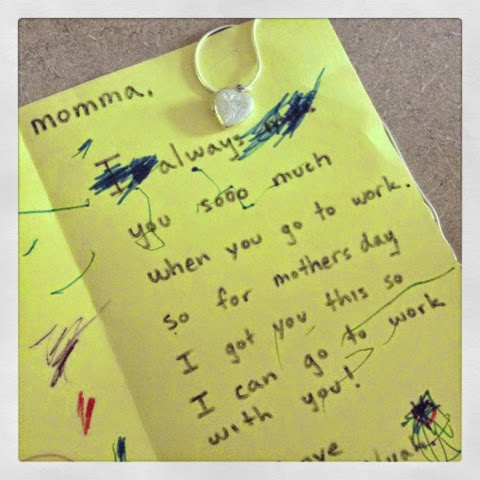 momma,
I always
you sooo much
when you go to work.
so for mothers day
I got you this so
I can go to work
with you!